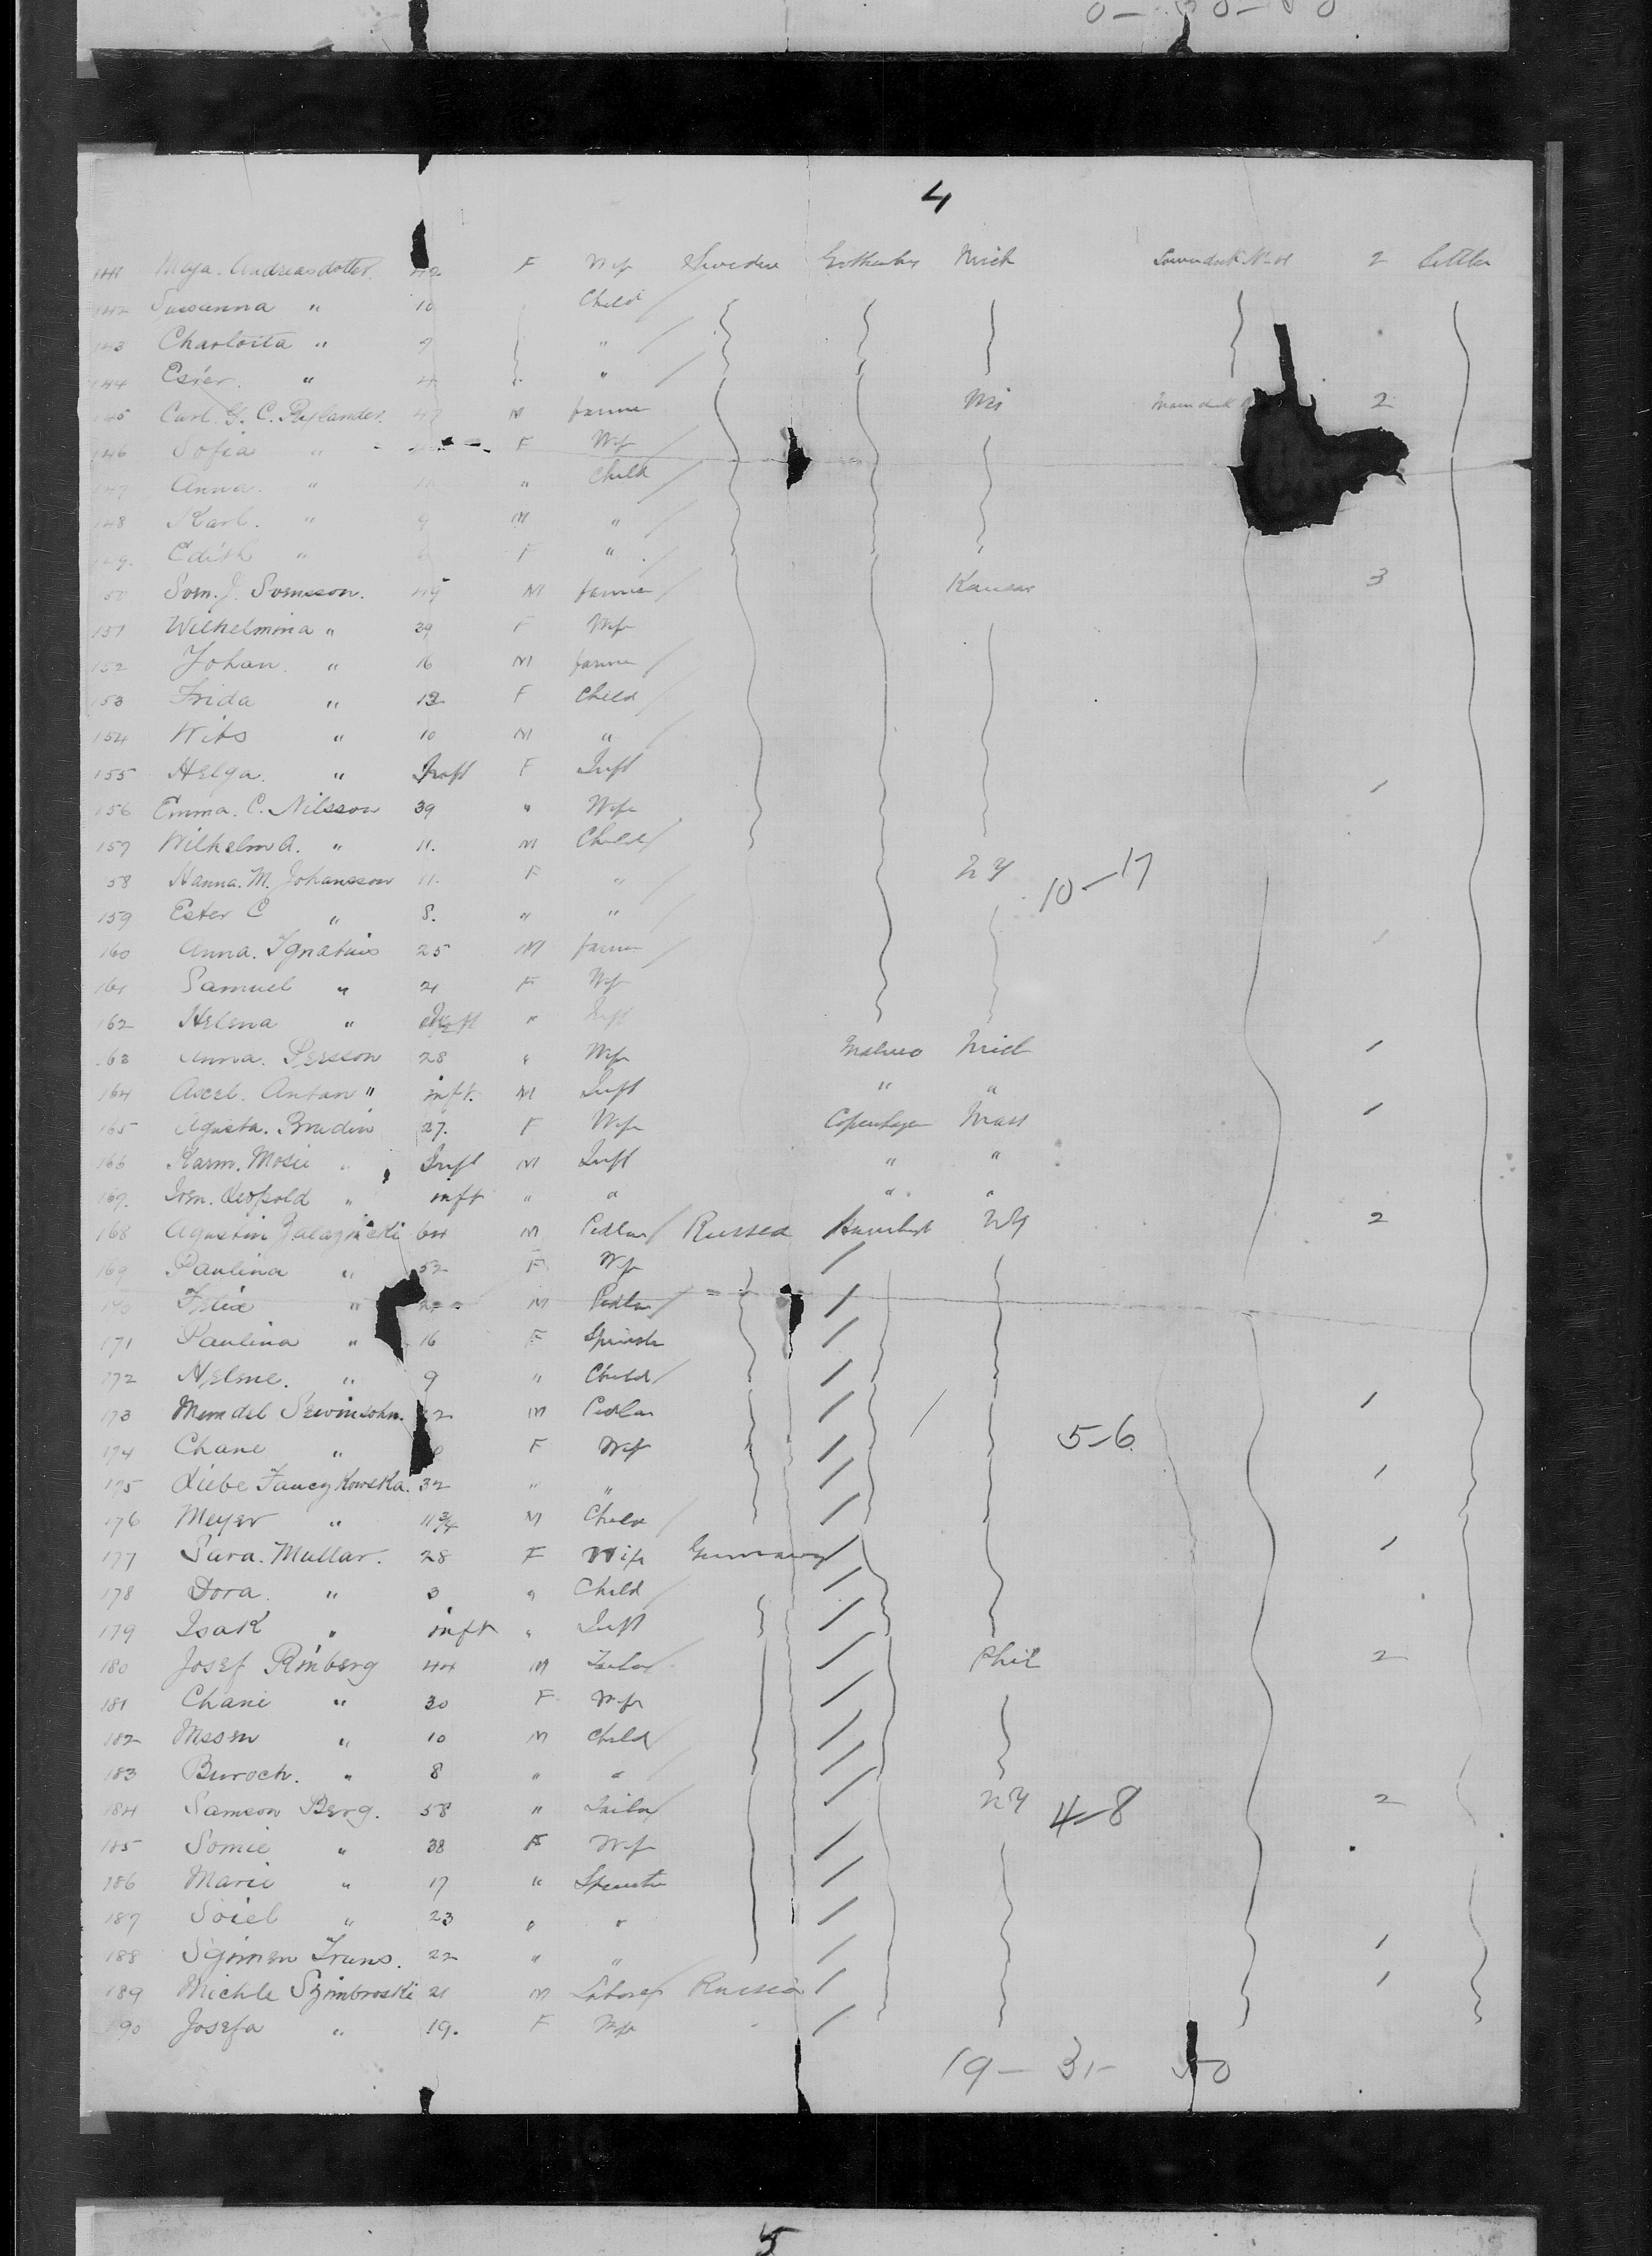 4
141 Maja. Andreasdotter. 42 F Wife Sweden Gothenbg Mich 2 Settler
142 Sussanna " 10 Child
143 Charlotta " 7 "
144 Ester. " 4 " "
145 Carl. G. C. Rylander. 47 M farmer Mi 2
146 Sofia " F Wife
147 Anna. " 10 " Child
148 Karl. " 9 M "
149. Edith " F "
150 Sven. J. Svensson. 45 M farmer Kansas 3
151 Wilhelmina " 39 F Wife
152 Johan. " 16 M farmer
153 Frida " 12 F Child
154 Wits " 10 M "
155 Helga. " Inft F Inft
156 Emma. C. Nilsson 39 " Wife 1
157 Wilhelm A. " 11. M Child
158 Hanna. M. Johansson 11. F " NY 10-17
159 Ester C " 8. " "
160 Anna. Ignatius 25 M farmer 1
161 Samuel " 21 F Wife
162 Helena " Inft " Inft
163 Anna. Persson 28 " Wife Malmo Mich 1
164 Axel. Antan " inft. M Inft " "
165 Agusta. 27. F Wife Copenhagen Mass 1
166 Karm. Mosie " Inft M Inft " "
167. Ivem. Leopold " inft " " " "
168 Agustin 64 M Pedlar Russia NY 2
169 Paulina " 52 F Wife
170 Felix " M Pedlar
171 Paulina " 16 F Spinster
172 Helene. " 9 " Child
173 Mendel M Pedlar 1
174 Chane " F Wife 5-6
175 Liebe 32 " " 1
176 Meyer " 11 3/4 M Child
177 Sara. Mullar. 28 F Wife Germany 1
178 Dora. " 3 " Child
179 Isak " inft " Inft
180 Josef Rinberg 44 M Tailor Phil 2
181 Chane " 30 F Wife
182 " 10 M Child
183 Buroch. " 8 " "
184 Samson Berg. 58 " Tailor NY 4-8 2
185 Somie " 38 F Wife
186 Marie " 17 " Spinster
187 Soiel " 23 " "
188 Truns. 22 " " 1
189 Michle Szimbroski 21 M Laborer Russia 1
190 Josefa " 19. F Wife
19- 31- 50
5